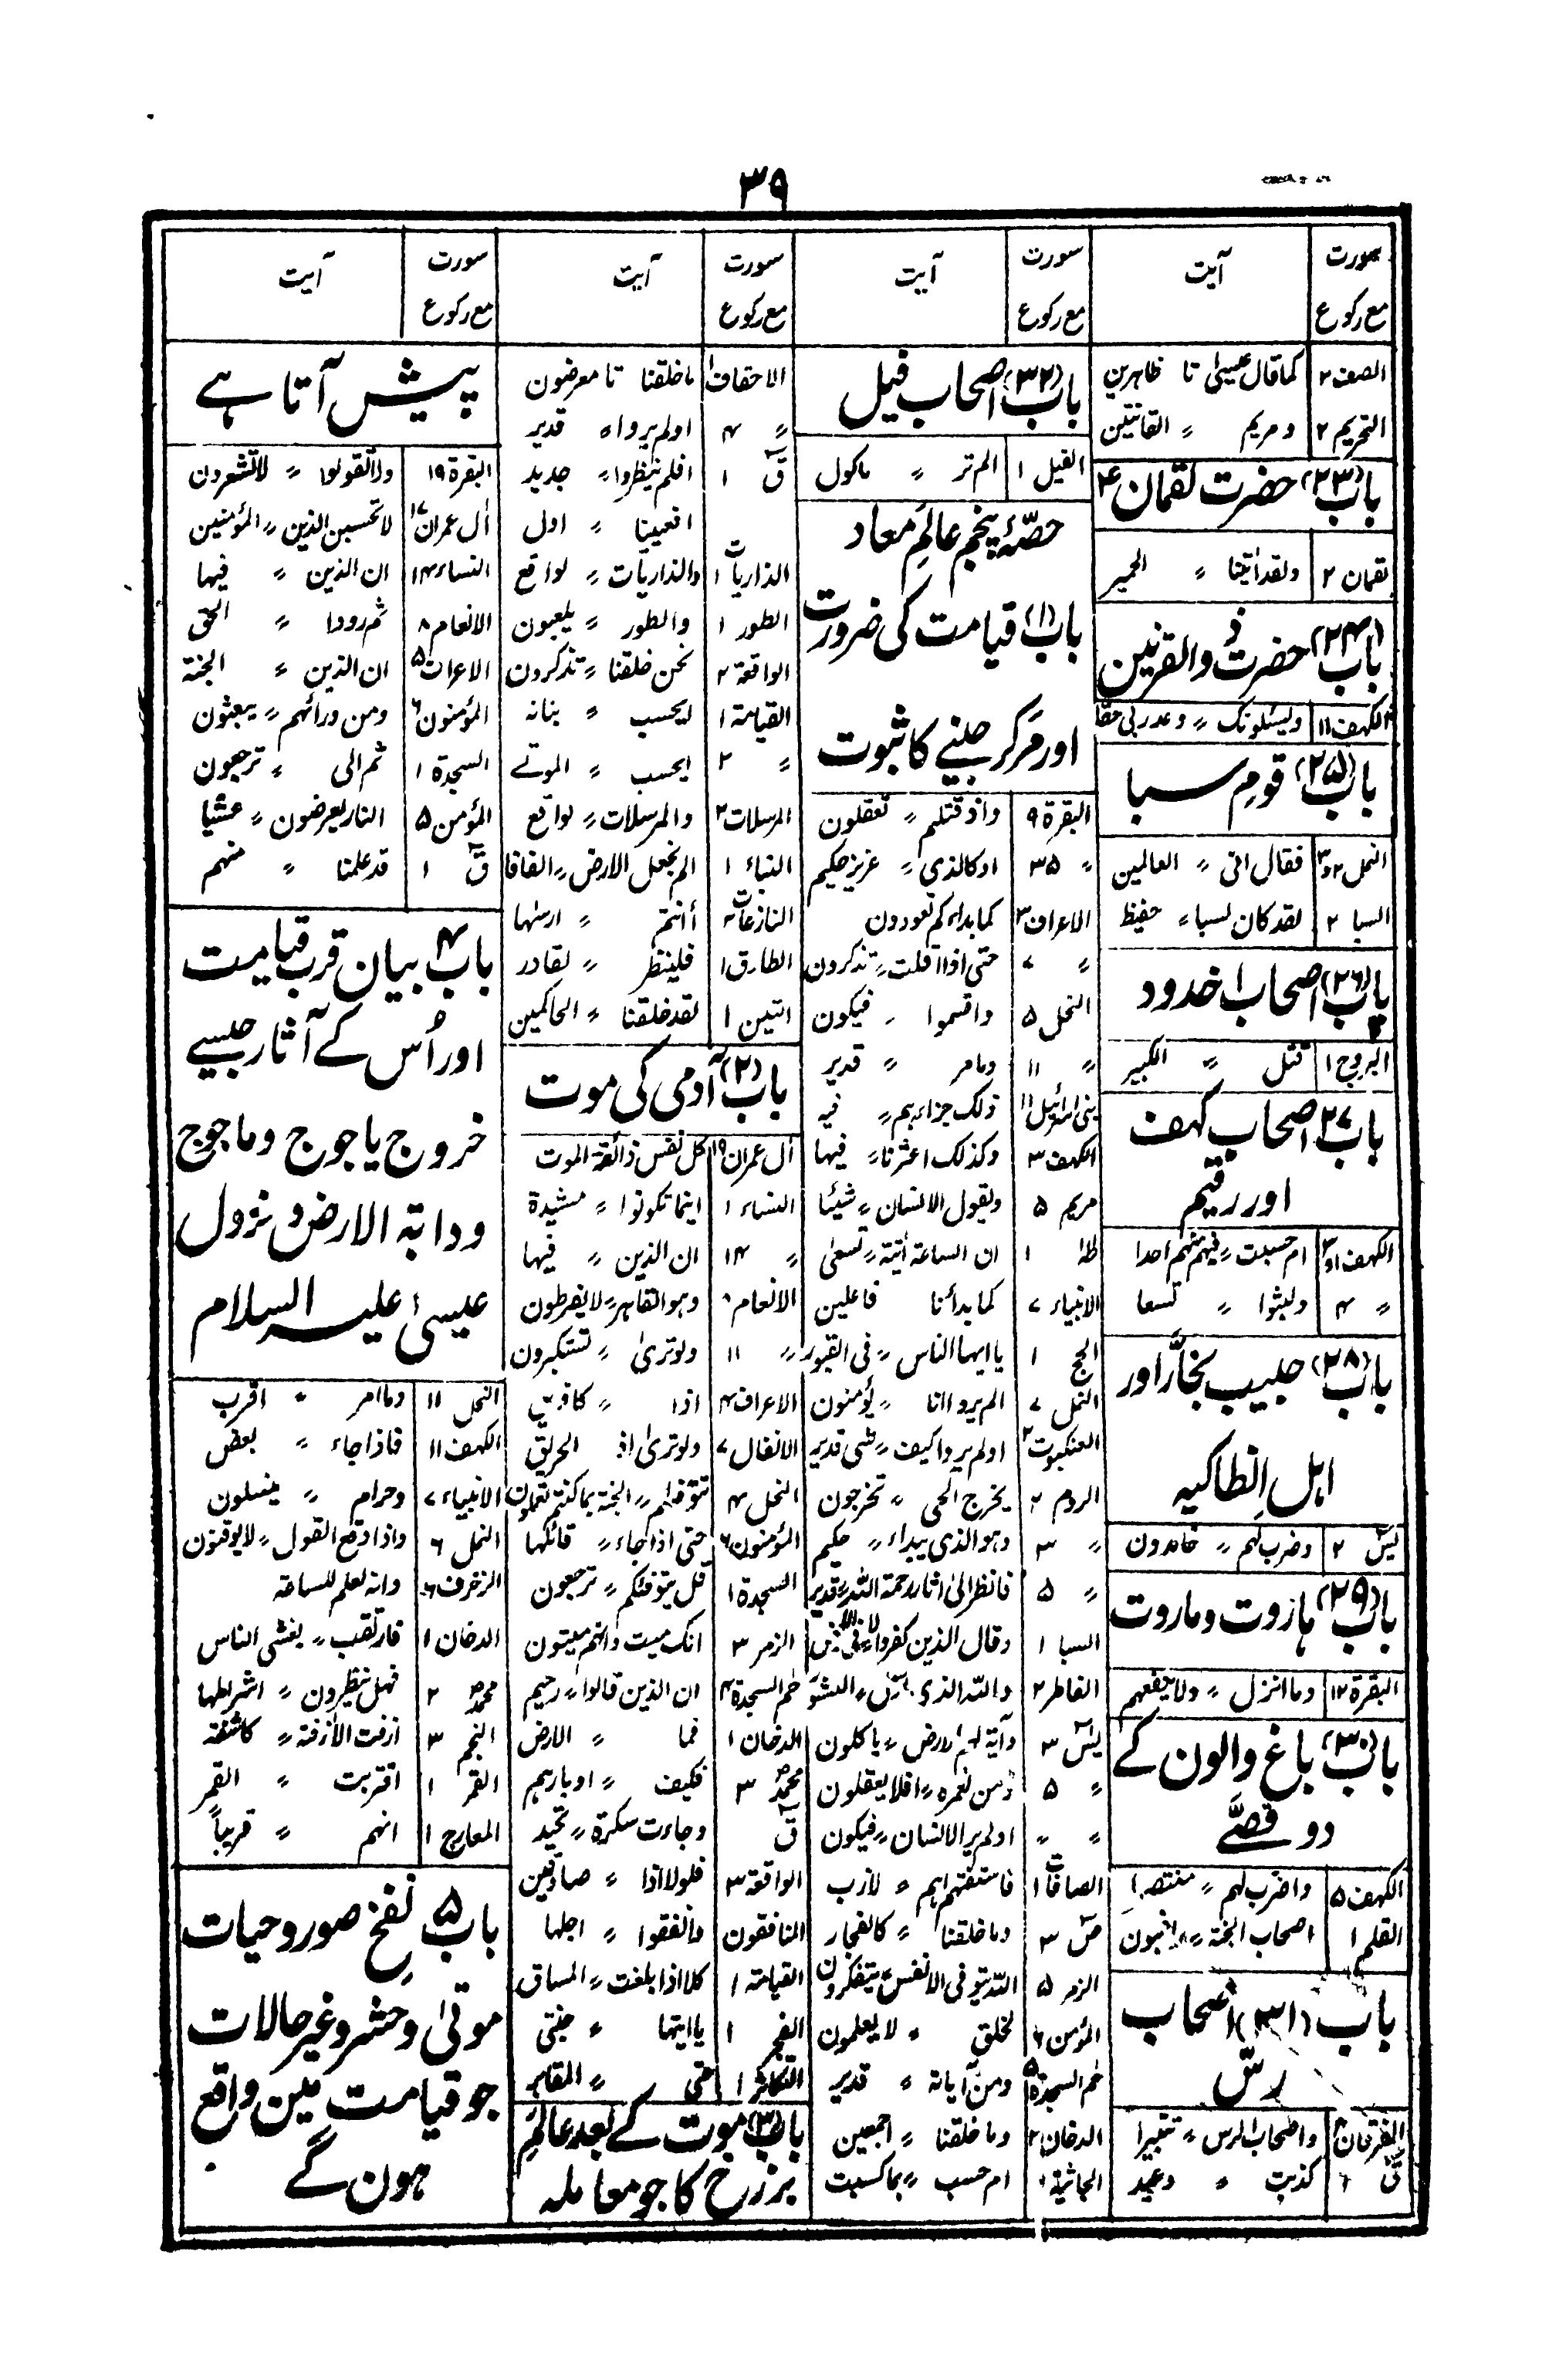 ۳۹
سورت مع رکوع آیت
الصف ۲ کما قال عیسیٰ تا ظاہرین
التحریم ۲ و مریم 〃 القانتین
باب (۲۳) حضرت لقمان ؑ
لقمان ۲ ولقد اٰتینا 〃 الحمیر
باب (۲۴) حضرت ذوالقرنین
الکہف ۱۱ ویسئلونک 〃 وعد ربی حقا
باب (۲۵) قومِ سبا
النمل ۲و۳ فقال انی 〃 العالمین
السبا ۲ لقد کان لسبا 〃 حفیظ
باب (۲۶) اصحاب اخدود
البروج ۱ قتل 〃 الکبیر
باب ۲۷ اصحاب کہف
اور رقیم
الکہف ۱و۲ ام حسبت 〃 فیہم منہم احدا
〃 ۴ ولبثوا 〃 تسعا
باب (۲۸) حبیب نجّار اور
اہل انطاکیہ
یٰسٓ ۲ وضرب لہم 〃 خامدون
باب (۲۹) ہاروت و ماروت
البقرة ۱۲ وما انزل 〃 ولا ینفعہم
باب (۳۰) باغ والون کے
دو قصّے
الکہف ۵ واضرب لہم 〃 منتصرا
القلم ۱ اصحاب الجنة 〃
باب (۳۱) اصحاب
رسّ
الفرقان واصحاب الرس 〃 تتبیرا
قٓ ۱ کذبت 〃 وعید
سورت مع رکوع آیت
باب (۳۲) اصحاب فیل
الفیل ۱ الم تر 〃 ماکول
حصّۂ پنجم عالمِ معاد
باب (۱) قیامت کی ضرورت
اور مَر کر جینے کا ثبوت
البقرة ۹ واذ قتلتم 〃 تعقلون
〃 ۳۵ اوکالذی 〃 عزیز حکیم
الاعراف ۳ کما بداءکم تعودون
〃 ۷ حتی اذا اقلت 〃 تذکرون
النحل ۵ واقسموا 〃 فیکون
〃 ۱۱ وما امر 〃 قدیر
بنی اسرائیل ۱۱ ذلک جزاءہم 〃 فیہ
الکہف ۳ وکذلک اعثرنا 〃 فیہا
مریم ۵ ویقول الانسان 〃 شیئا
طٰہٰ ۱ ان الساعة اٰتیة 〃 تسعیٰ
الانبیاء ۷ کما بدأنا فاعلین
الحج ۱ یا ایہا الناس 〃 فی القبور
النمل ۷ الم یروا انا 〃 یؤمنون
العنکبوت ۲ اولم یروا کیف 〃 شی قدیر
الروم ۲ یخرج الحی 〃 تخرجون
〃 ۳ وہو الذی یبداء 〃 حکیم
〃 ۵ فانظر الیٰ اٰثار رحمة اللہ 〃 قدیر
السبا ۱ وقال الذین کفروا لا
الفاطر ۲ واللہ الذی 〃 النشور
یٰسٓ ۳ وآیة لہم الارض 〃 یاکلون
〃 ۵ ومن نعمرہ 〃 افلا یعقلون
〃 〃 اولم یر الانسان 〃 فیکون
الصافات ۱ فاستفتہم اہم 〃 لازب
صٓ ۳ وما خلقنا 〃 کالفجار
الزمر ۵ اللہ یتوفی الانفس 〃 یتفکرون
المؤمن ۶ لخلق 〃 لا یعلمون
حٰم السجدة ۵ ومن آیاتہ 〃 قدیر
الدخان ۲ وما خلقنا 〃 اجمعین
الجاثیة ۲ ام حسب 〃 بما کسبت
سورت مع رکوع آیت
الاحقاف ۱ ما خلقنا تا معرضون
〃 ۴ اولم یروا 〃 قدیر
قٓ ۱ افلم ینظروا 〃 جدید
افعیینا 〃 اول
الذاریات ۱ والذاریات 〃 لواقع
الطور ۱ والطور 〃 یلعبون
الواقعة ۲ نحن خلقنا 〃 تذکرون
القیامة ۱ ایحسب 〃 بنانہ
〃 ۲ ایحسب 〃 الموتے
المرسلات ۲ والمرسلات 〃 لواقع
النباء ۱ الم نجعل الارض 〃 الفافا
النازعات ۲ أانتم 〃 ارسٰہا
الطارق ۱ فلینظر 〃 لقادر
التین ۱ لقد خلقنا 〃 الحاکمین
باب (۲) آدمی کی موت
اٰل عمران ۱۹ کل نفس ذائقة الموت
النساء ۱ اینما تکونوا 〃 مشیدة
〃 ۱۴ ان الذین 〃 فیہا
الانعام ۸ وہو القاہر 〃 لا یفرطون
〃 ۱۱ ولو تریٰ 〃 تستکبرون
الاعراف ۴ اذا 〃 کافرین
الانفال ۷ ولو تریٰ اذ الحریق
النحل ۴ تتوفہم 〃 الجنة بما کنتم تعملون
المؤمنون ۶ حتی اذا جاء 〃 قائلہا
السجدة ۱ قل یتوفٰکم 〃 ترجعون
الزمر ۳ انک میت وانہم میتون
حٰم السجدة ۴ ان الذین قالوا 〃 رحیم
الدخان ۱ فما 〃 الارض
محمدؐ ۳ فکیف 〃 ادبارہم
قٓ وجاءت سکرة 〃 تحید
الواقعة ۳ فلولا اذا 〃 صادقین
المنافقون وانفقوا 〃 اجلہا
القیامة ۱ کلا اذا بلغت 〃 المساق
الفجر ۱ یا ایتہا 〃 جنتی
التکاثر ۱ حتی 〃 المقابر
باب (۳) موت کے بعد عالَم
برزخ کا جو معاملہ
سورت مع رکوع آیت
پیش آتا ہے
البقرة ۱۹ ولا تقولوا 〃 لا تشعرون
اٰل عمران ۱۷ لا تحسبن الذین 〃 المؤمنین
النساء ۱۴ ان الذین 〃 فیہا
الانعام ۸ ثم ردوا 〃 الحق
الاعراف ۵ ان الذین 〃 الجنة
المؤمنون ۶ ومن ورائہم 〃 یبعثون
السجدة ۱ ثم الی 〃 ترجعون
المؤمن ۵ النار یعرضون 〃 عشیا
قٓ ۱ قد علمنا 〃 منہم
باب ۴ بیان قرب قیامت
اور اُس کے آثار جیسے
خروج یاجوج وماجوج
ودابة الارض و نزول
عیسیٰ علیہ السلام
النحل ۱۱ وما امر 〃 اقرب
الکہف ۱۱ فاذا جاء 〃 بعض
الانبیاء ۷ وحرام 〃 ینسلون
النمل ۶ واذا وقع القول 〃 لا یوقنون
الزخرف ۶ وانہ لعلم للساعة
الدخان ۱ فارتقب 〃 یغشی الناس
محمدؐ ۲ فہل ینظرون 〃 اشراطہا
النجم ۳ ازفت الاٰزفة 〃 کاشفة
القمر ۱ اقتربت 〃 القمر
المعارج ۱ انہم 〃 قریباً
باب ۵ نفخِ صور و حیات
موتیٰ و حشر وغیر حالات
جو قیامت مین واقع
ہون گے